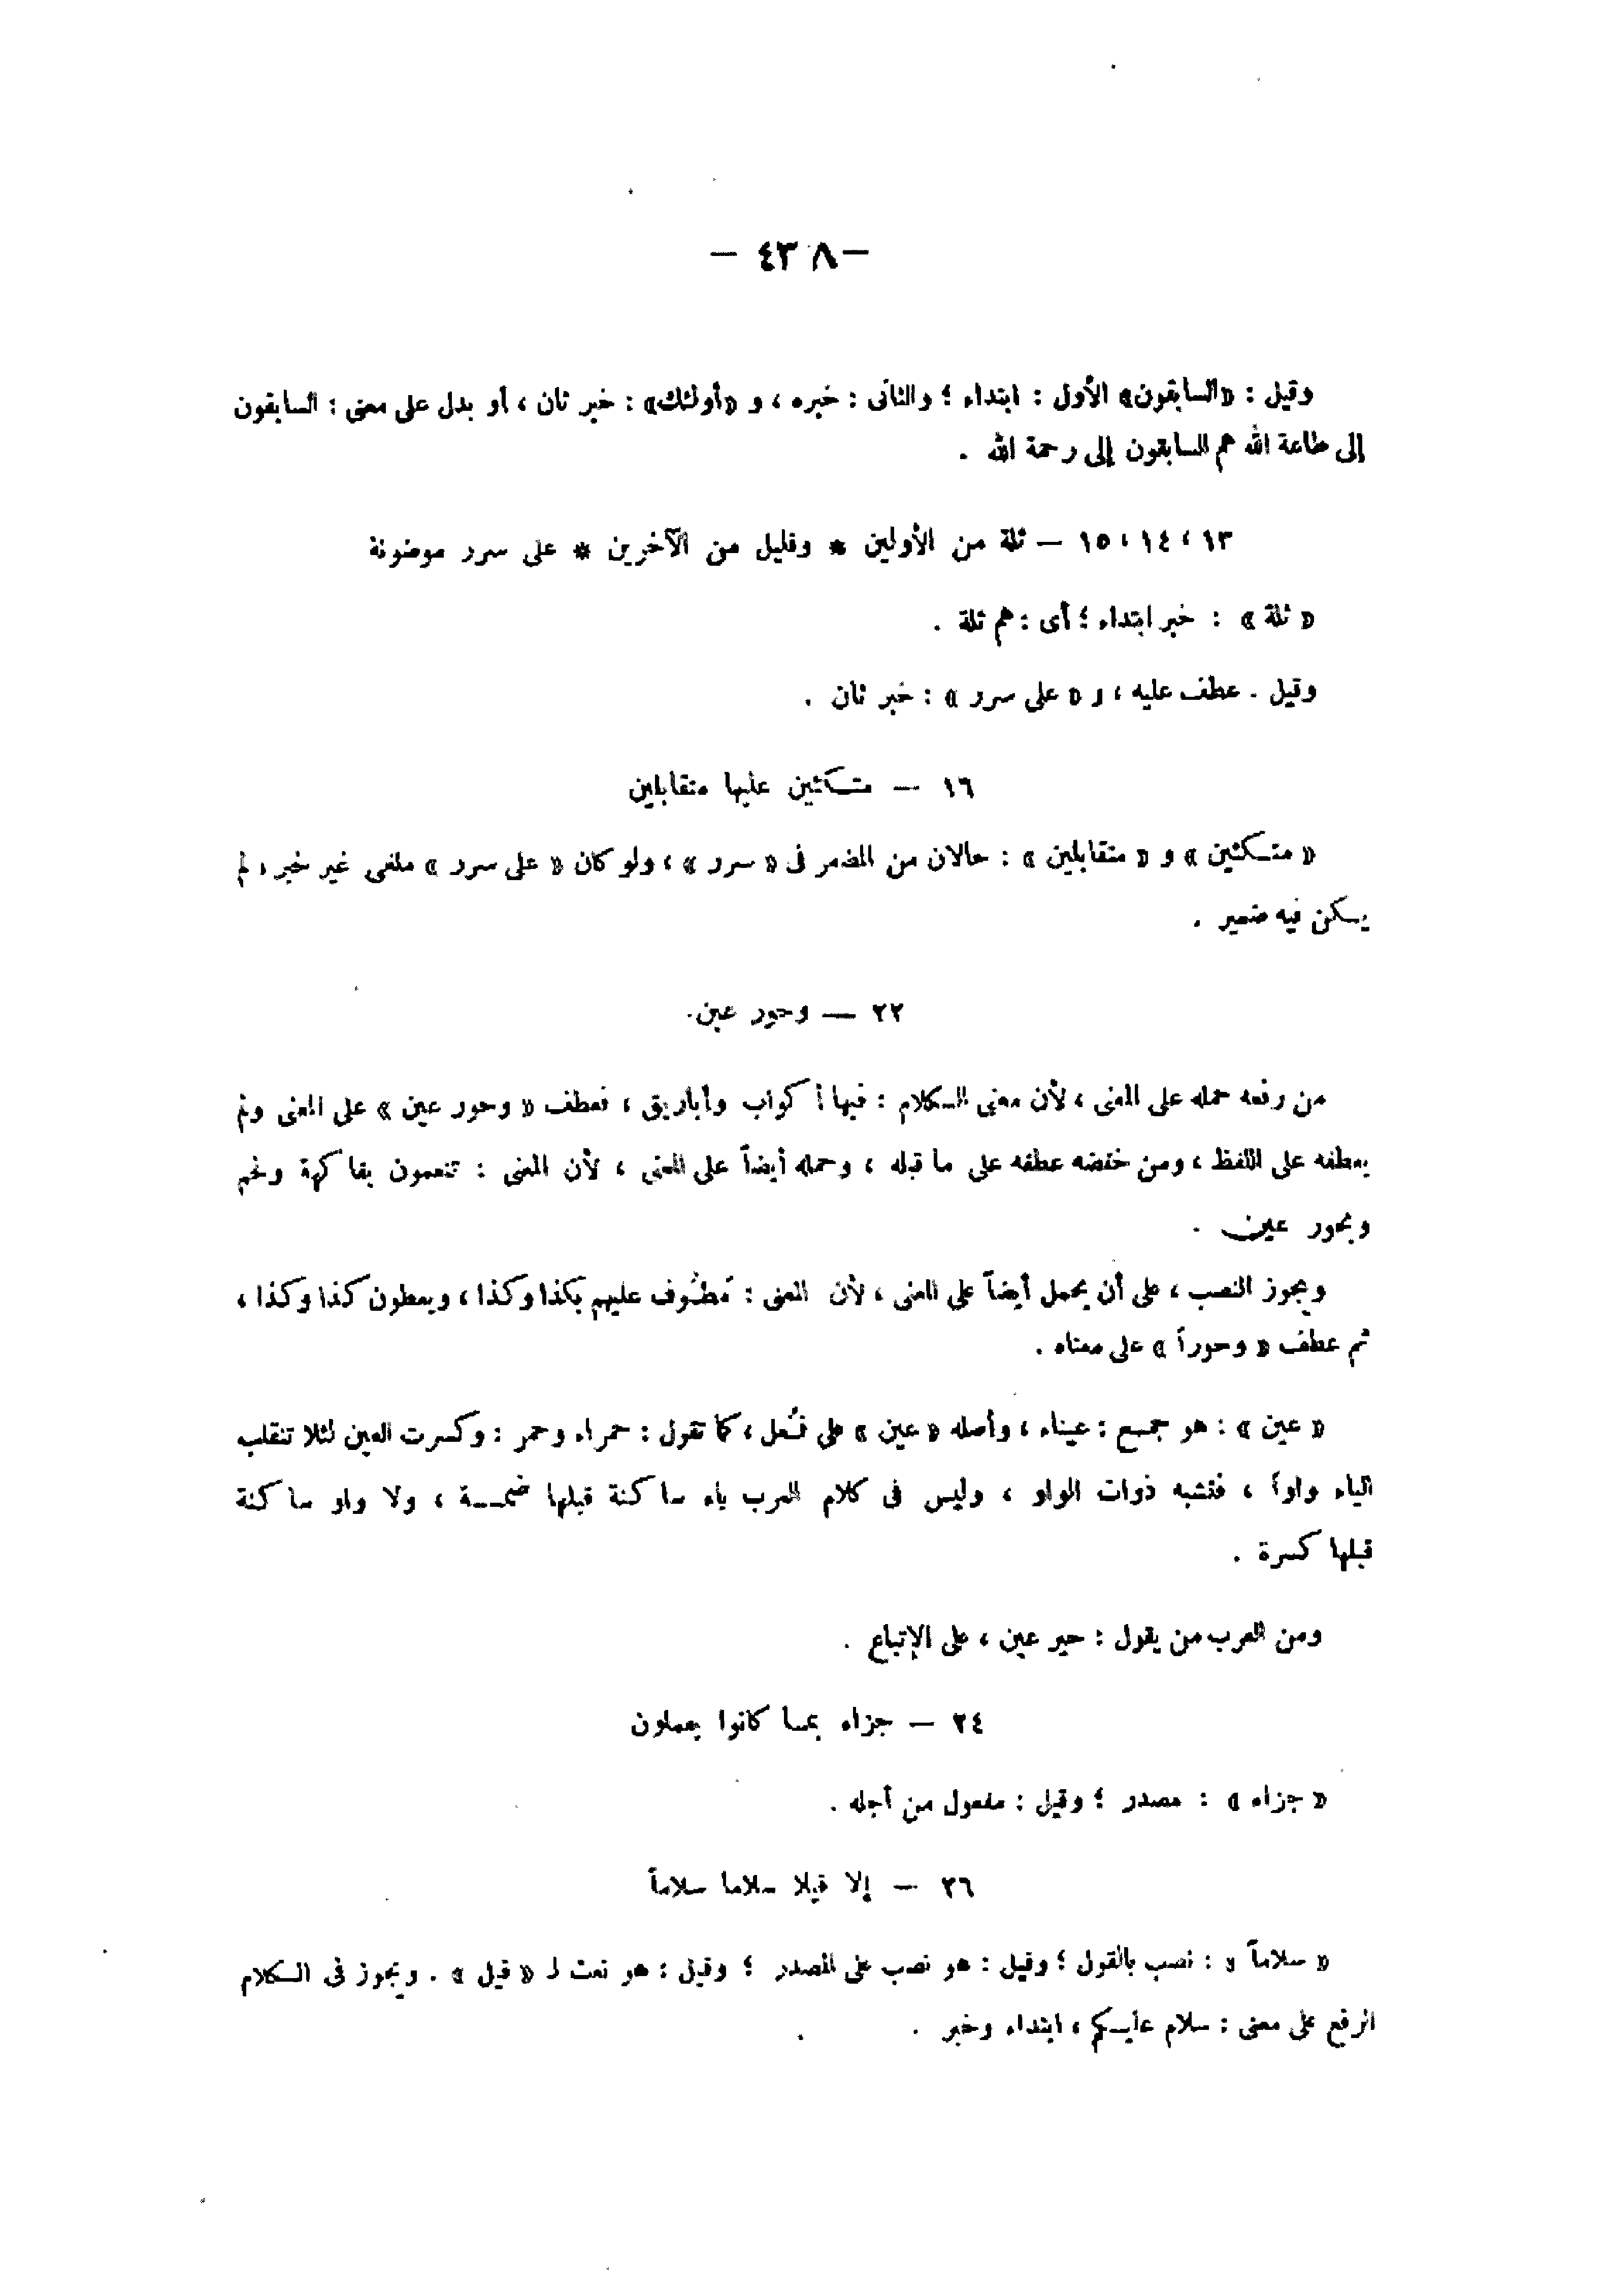 — ٤٣٨ —
وقيل : «السابقون» الأول : ابتداء ؛ والثانى : خبره ، و «أولئك» : خبر ثان ، أو بدل على معنى : السابقون
إلى طاعة الله هم السابقون إلى رحمة الله .
١٣ ، ١٤ ، ١٥ — ثلة من الأولين * وقليل من الآخرين * على سرر موضونة
« ثلة » : خبر ابتداء ؛ أى : هم ثلة .
وقيل . عطف عليه ، و « على سرر » : خبر ثان .
١٦ — متكئين عليها متقابلين
« متكئين » و « متقابلين » : حالان من المضمر فى « سرر » ، ولو كان « على سرر » ملغى غير خبر ، لم
يكن فيه ضمير .
٢٢ — وحور عين
من رفعه حمله على المعنى ، لأن معنى الكلام : فيها أكواب وأباريق ، فعطف « وحور عين » على المعنى ولم
يعطفه على اللفظ ، ومن خفضه عطفه على ما قبله ، وحمله أيضاً على المعنى ، لأن المعنى : تنعمون بفاكهة ولحم
وبحور عين .
ويجوز النصب ، على أن يحمل أيضاً على المعنى ، لأن المعنى : يُطوَّف عليهم بكذا وكذا ، ويعطون كذا وكذا ،
ثم عطف « وحوراً » على معناه .
« عين » : هو جمع : عيناء ، وأصله « عين » على فُعل ، كما تقول : حمراء وحمر : وكسرت العين لئلا تنقلب
الياء واواً ، فتشبه ذوات الواو ، وليس فى كلام العرب ياء ساكنة قبلها ضمة ، ولا واو ساكنة
قبلها كسرة .
ومن العرب من يقول : حير عين ، على الإتباع .
٢٤ — جزاء بما كانوا يعملون
« جزاء » : مصدر ؛ وقيل : مفعول من أجله .
٢٦ — إلا قيلا سلاما سلاماً
« سلاماً » : نصب بالقول ؛ وقيل : هو نصب على المصدر ؛ وقيل : هو نعت لـ « قيل » . ويجوز فى الكلام
الرفع على معنى : سلام عليكم ، ابتداء وخبر .